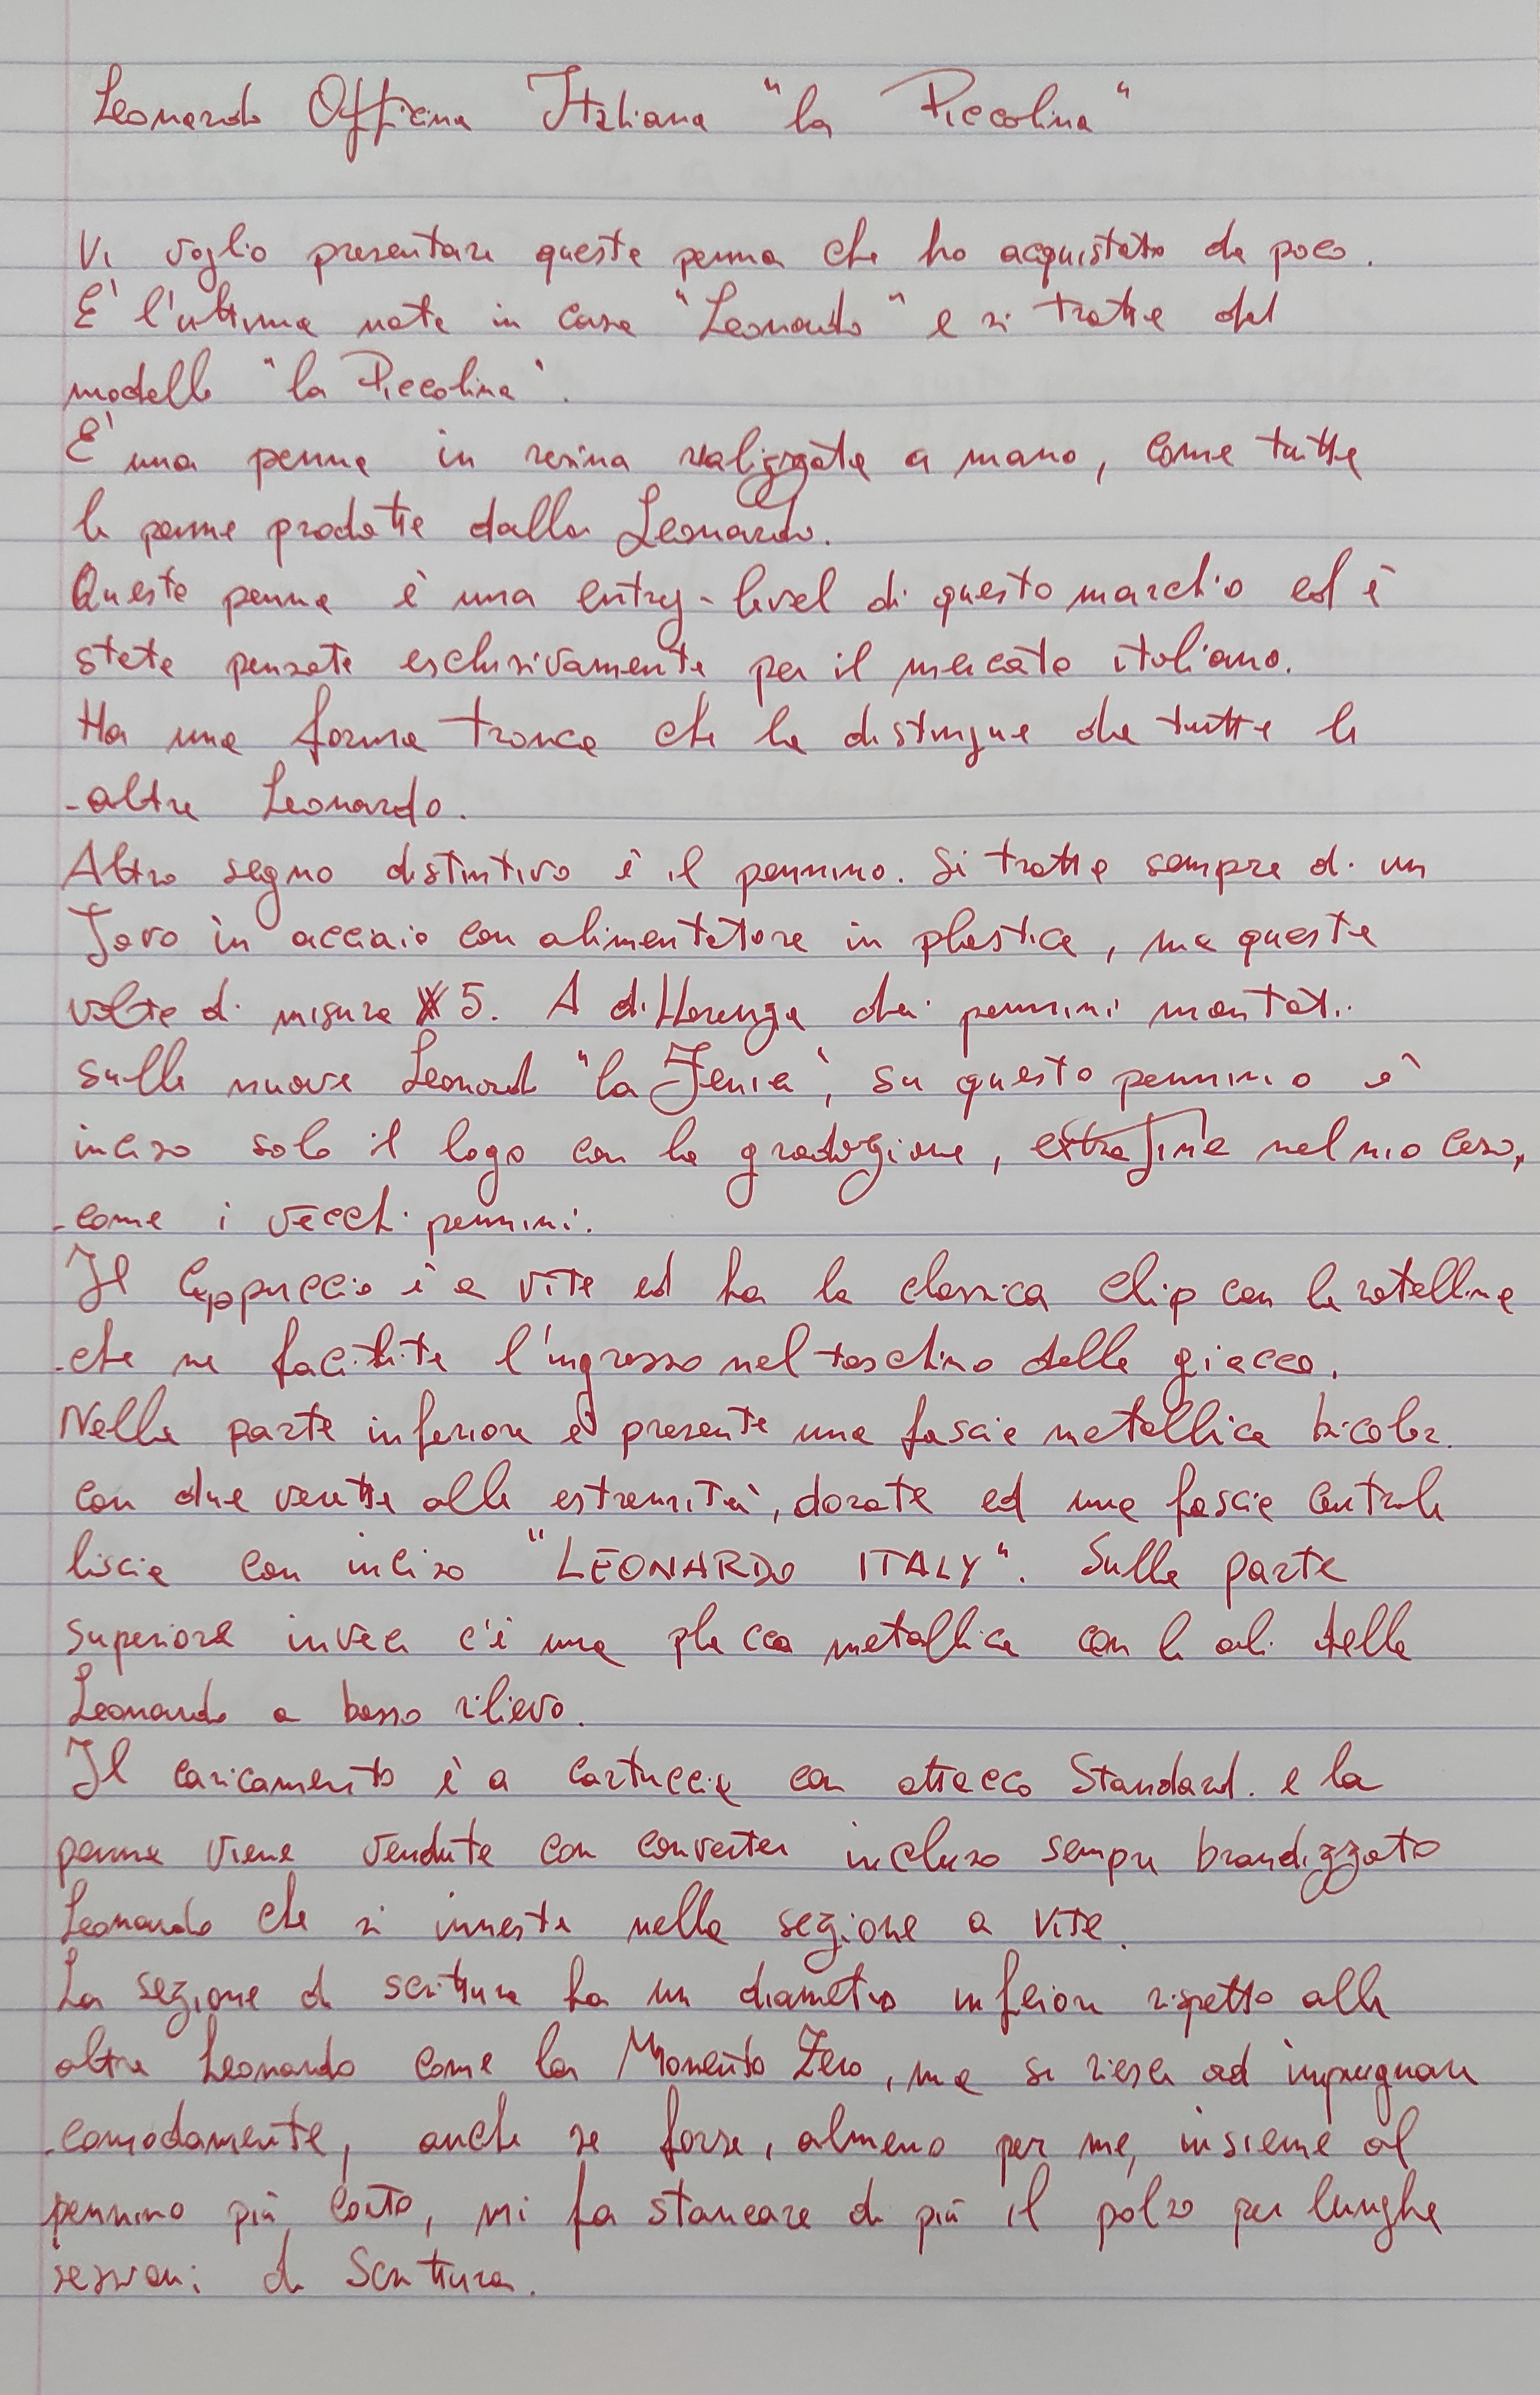 Leonardo Officina Italiana "la Piccolina"
Vi voglio presentare questa penna che ho acquistato da poco.
E' l'ultima nata in casa "Leonardo" e si tratta del
modello "la Piccolina".
E' una penna in resina realizzata a mano, come tutte
le penne prodotte dalla Leonardo.
Questa penna è una entry-level di questo marchio ed è
stata pensata esclusivamente per il mercato italiano.
Ha una forma tronca che la distingue da tutte le
altre Leonardo.
Altro segno distintivo è il pennino. Si tratta sempre di un
Jovo in acciaio con alimentatore in plastica, ma questa
volta di misura 5. A differenza dei pennini montati
sulle nuove Leonardo "la Fenice", su questo pennino è
inciso solo il logo con la gradazione, extrafine nel mio caso,
come i vecchi pennini.
Il cappuccio è a vite ed ha la classica clip con la rotellina
che ne facilita l'ingresso nel taschino della giacca.
Nella parte inferiore è presente una fascia metallica bicolor
con due verette alle estremità, dorate ed una fascia centrale
liscia con inciso "LEONARDO ITALY". Sulla parte
superiore invece c'è una placca metallica con le ali della
Leonardo a basso rilievo.
Il caricamento è a cartuccia con attacco Standard. e la
penna viene venduta con converter incluso sempre brandizzato
Leonardo che si innesta nella sezione a vite.
La sezione di scrittura ha un diametro inferiore rispetto alle
altre Leonardo come la Momento Zero, ma si riesce ad impugnare
comodamente, anche se forse, almeno per me, insieme al
pennino più corto, mi fa stancare di più il polso per lunghe
sessioni di scrittura.